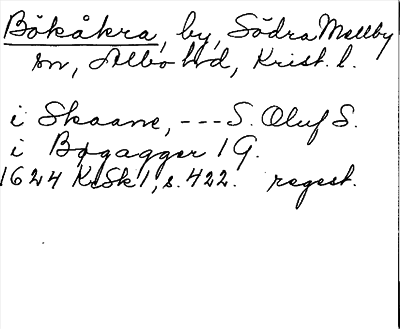 Bökåkra, by, Södra Mellby
sn, Albo hd, Krist. l.
i Skaane, --- S. Oluf S.
i Bøgagger 1 G.
1624 KrSk 1, s. 422. regest.